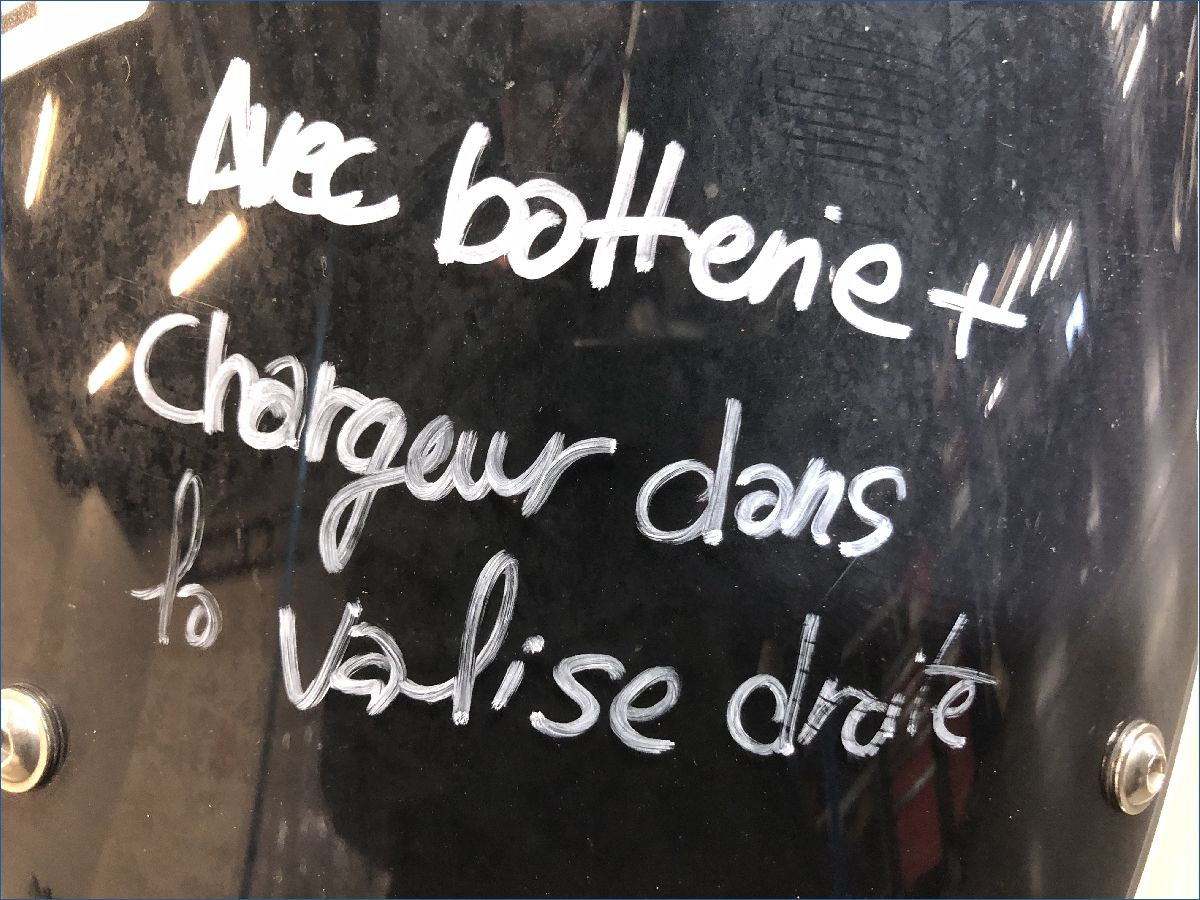 Avec batterie +
Chargeur dans
la valise droite